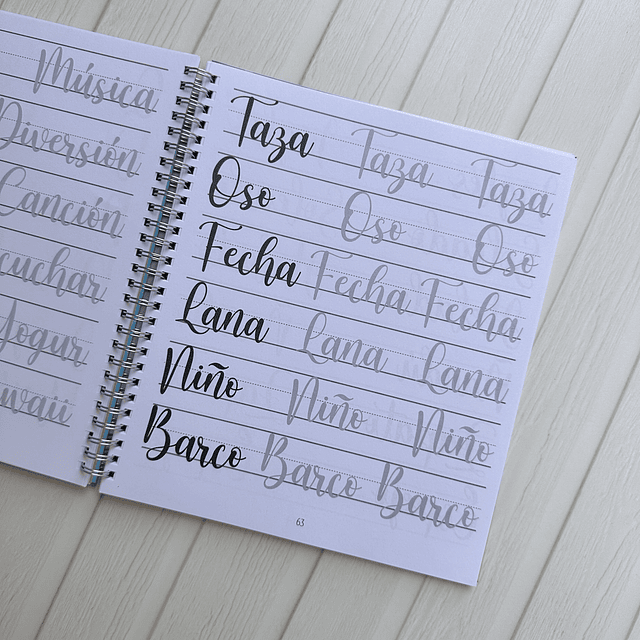 Música
Diversión
Canción
cuchar
Yogur
waii
Taza Taza Taza
Oso Oso Oso
Fecha Fecha Fecha
Lana Lana Lana
Niño Niño Niño
Barco Barco Barco
63